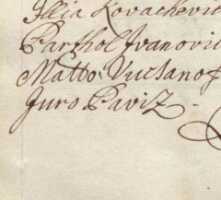 Illia Kovachevic
Barthol Ivanovic
Matto Vucsanof
Juro Paviz